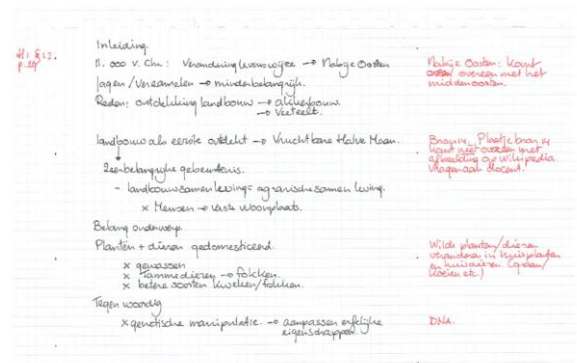 H1 § 1.2.
p. 24
Inleiding
11.000 v. Chr.: Verandering levenswijze → Nabije Oosten
jagen / verzamelen → minder belangrijk.
Reden: ontdekking landbouw → akkerbouw.
→ veeteelt.
landbouw als eerste ontdekt → Vruchtbare Halve Maan.
Zeer belangrijke gebeurtenis.
- landbouwsamenleving = agrarische samenleving.
x Mensen → vaste woonplaats.
Belang onderwerp.
Planten + dieren gedomesticeerd
x gewassen
x tamme dieren → fokken.
x betere soorten kweken / fokken.
Tegenwoordig
x genetische manipulatie. → aanpassen erfelijke
eigenschappen
Nabije Oosten: komt
overeen met het
middenoosten.
Bron 14. Plaatje bron 14
komt niet overeen met
afbeelding op wikipedia
vragen aan docent.
Wilde planten / dieren
veranderen in huisplanten
en huisdieren (graan /
koeien etc.)
DNA.